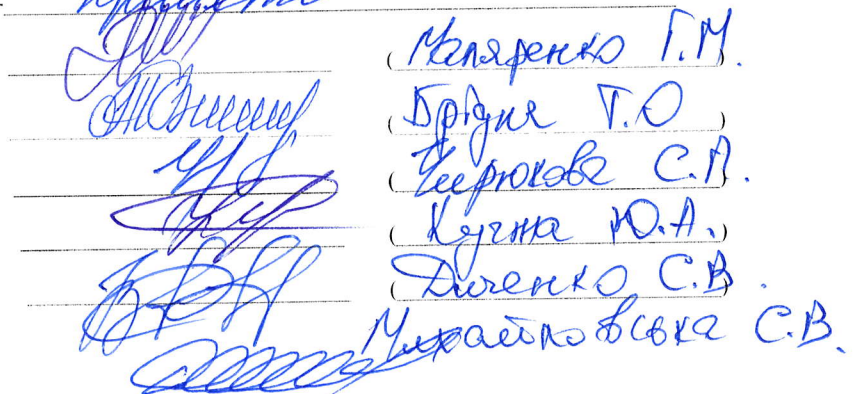 (Маляренко Г.М.)
(Брідня Т.О)
(Чирюкова С.П.)
(Кучма Ю.А.)
(Диченко С.В.)
Михайловська С.В.